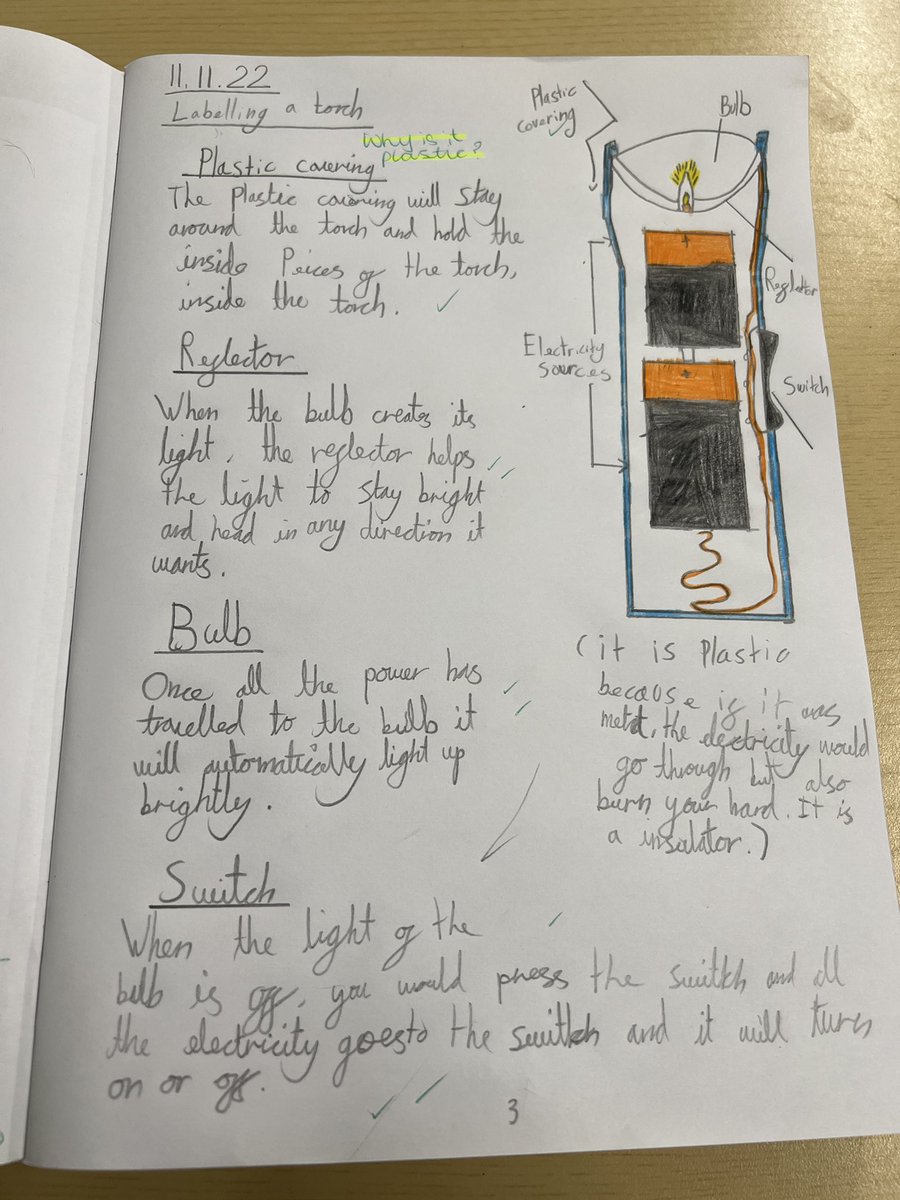 11.11.22
Labelling a torch
Why is it
plastic?
Plastic covering
The plastic covering will stay
around the torch and hold the
inside Peices of the torch,
inside the torch.
Reflector
When the bulb creates its
light, the reflector helps
the light to stay bright
and head in any direction it
wants.
Bulb
Once all the power has
travelled to the bulb it
will automatically light up
brightly.
Switch
When the light of the
bulb is off, you would press the switkh and all
the electricity goes to the switkh and it will turn
on or off.
3
Plastic
covering
Bulb
+
Reflector
Electricity
sources
+
Switch
(it is plastic
because if it was
metal, the electricity would
go through but also
burn your hand. It is
a insulator.)